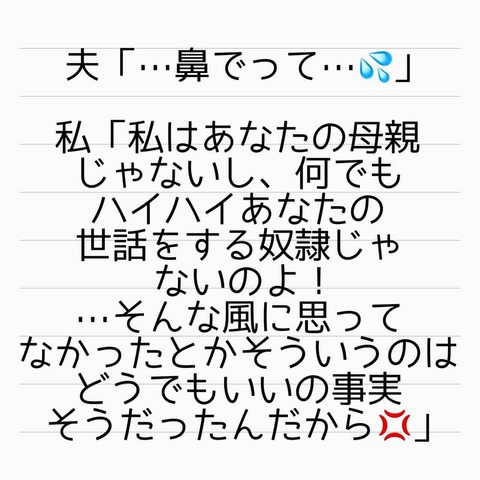 夫「…鼻でって…💦」
私「私はあなたの母親
じゃないし、何でも
ハイハイあなたの
世話をする奴隷じゃ
ないのよ！
…そんな風に思って
なかったとかそういうのは
どうでもいいの事実
そうだったんだから💢」